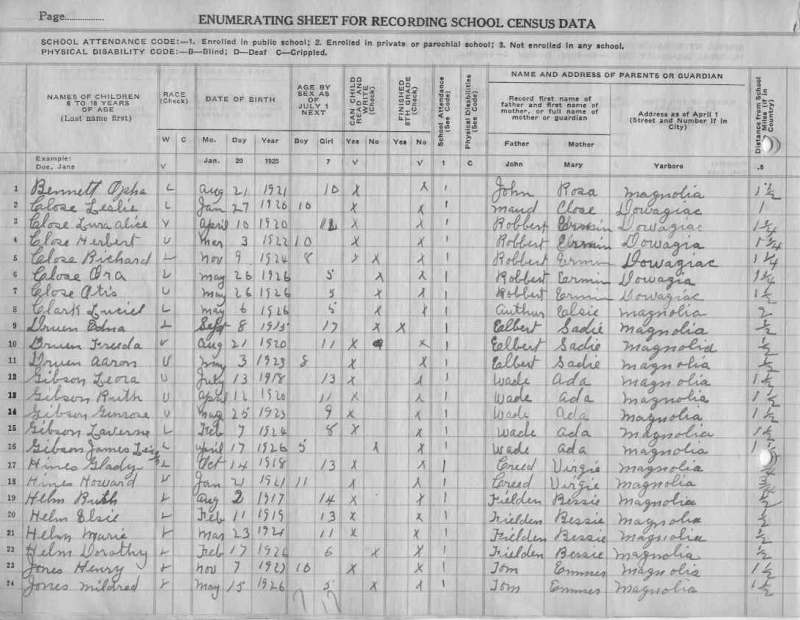 Page
ENUMERATING SHEET FOR RECORDING SCHOOL CENSUS DATA
SCHOOL ATTENDANCE CODE:—1. Enrolled in public school; 2. Enrolled in private or parochial school; 3. Not enrolled in any school.
PHYSICAL DISABILITY CODE:—B—Blind; D—Deaf C—Crippled.
NAMES OF CHILDREN 6 TO 18 YEARS OF AGE (Last name first)
RACE (Check)
DATE OF BIRTH
AGE BY SEX AS OF JULY 1 NEXT
CAN CHILD READ AND WRITE (Check)
FINISHED 8TH GRADE (Check)
School Attendance (See Code)
Physical Disabilities (See Code)
NAME AND ADDRESS OF PARENTS OR GUARDIAN
Record first name of father and first name of mother, or full name of mother or guardian
Address as of April 1 (Street and Number if in City)
Distance from School in Miles (If in Country)
W C Mo. Day Year Boy Girl Yes No Yes No Father Mother
Example: Doe, Jane V Jan. 20 1925 7 V V 1 C John Mary Yarboro .5
1 Bennett Opha L Aug 21 1921 10 x x 1 John Rosa Magnolia 1 1/2
2 Close Leslie L Jan 27 1920 10 x x 1 Maud Close Dowagiac 1
3 Close Lura alice V April 10 1920 x x 1 Robbert Dowagiac
4 Close Herbert U Mar 3 1922 10 x x 1 Robbert Dowagia
5 Close Richard L Nov 9 1924 8 x x x 1 Robbert Ermin Dowagiac 1 1/4
6 Close Ora L May 26 1926 5 x x 1 Robbert Ermin Dowagia 1 1/4
7 Close Otis U May 26 1926 5 x x 1 Robbert Ermin Dowagiac 1 1/2
8 Clark Luciel L May 6 1926 5 x x 1 Author Elsie Magnolia 2
9 Druen Edna L Sept 8 1915 17 x x 1 Elbert Sadie Magnolia 1/2
10 Druen Freeda V Aug 21 1920 11 x x 1 Elbert Sadie Magnolia 1/2
11 Druen Aaron U May 3 1923 8 x x 1 Elbert Sadie Magnolia 1/2
12 Gibson Leora U July 13 1918 13 x x 1 Wade Ada Magnolia 1 1/2
13 Gibson Ruth U April 12 1920 11 x x 1 Wade Ada Magnolia 1 1/2
14 Gibson Genrose U 25 1923 9 x x 1 Wade Ada Magnolia 1 1/2
15 Gibson Laverne L Feb 7 1924 8 x x 1 Wade Ada Magnolia 1 1/2
16 Gibson James L April 17 1926 5 x x 1 Wade Ada Magnolia
17 Hines Glady L Oct 14 1918 13 x x 1 Creed Virgie Magnolia
18 Hines Howard V Jan 21 1921 11 x x 1 Creed Virgie Magnolia
19 Helm Ruth V Aug 2 1917 14 x x 1 Fielden Bessie Magnolia 1/2
20 Helm Elsie V Feb 11 1919 13 x x 1 Fielden Bessie Magnolia 1/2
21 Helm Marie V Mar 23 1921 11 x x 1 Fielden Bessie Magnolia 1/2
22 Helm Dorothy V Feb 17 1926 6 x x 1 Fielden Bessie Magnolia 1/2
23 Jones Henry V Nov 7 1923 10 x x 1 Tom Magnolia 1 1/2
24 Jones Mildred V May 15 1926 5 x x 1 Tom Magnolia 1 1/2